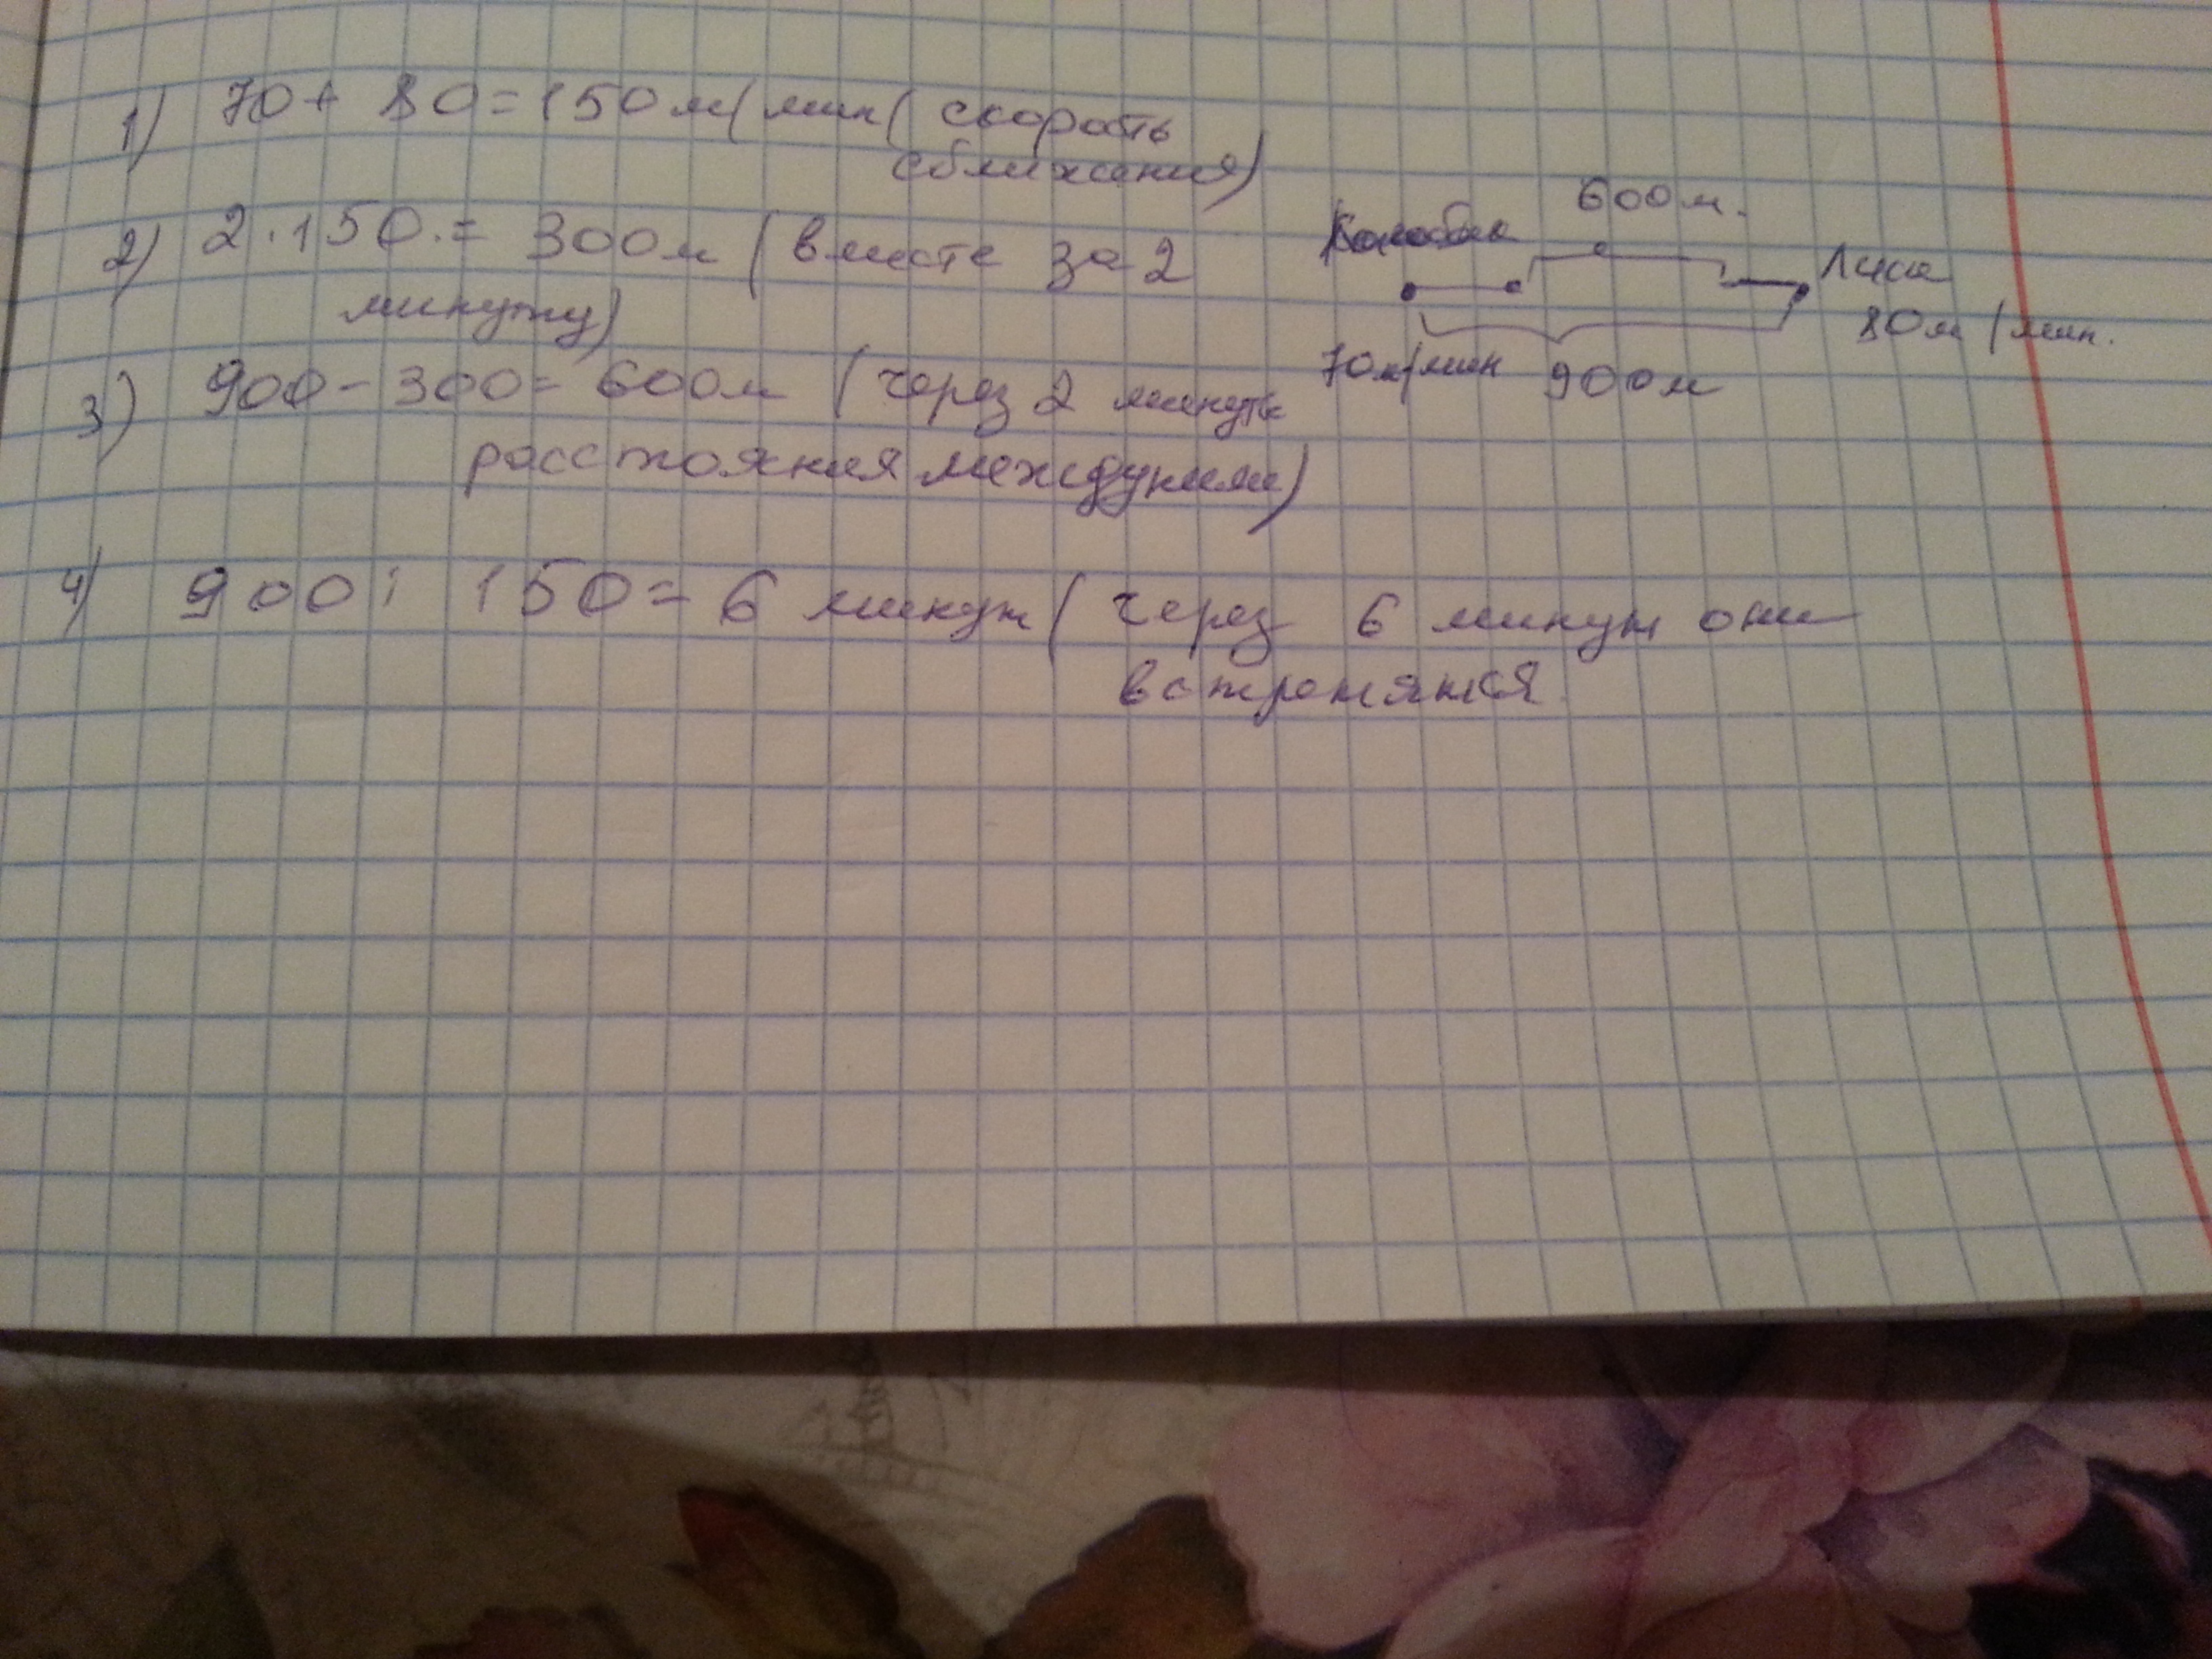 1) 70 + 80 = 150 м/мин (скорость
сближения)
2) 2 · 150 = 300 м (вместе за 2
минуту)
3) 900 - 300 = 600 м (через 2 минуты
расстояния между ними)
4) 900 : 150 = 6 минут (через 6 минут они
встретятся
600 м.
Колобок
Лиса
80 м/мин.
70 м/мин
900 м